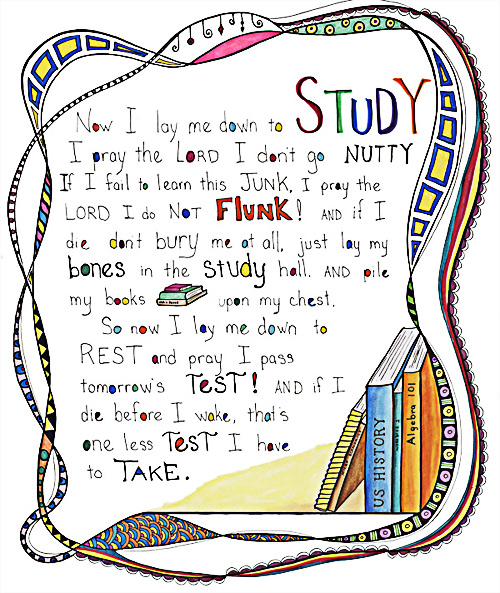 Now I lay me down to STUDY
I pray the LORD I don't go NUTTY
If I fail to learn this JUNK, I pray the
LORD I do NOT FLUNK! AND if I
die don't bury me at all, just lay my
bones in the study hall. AND pile
my books upon my chest.
So now I lay me down to
REST and pray I pass
tomorrow's TEST! AND if I
die before I wake, that's
one less TEST I have
to TAKE.
US HISTORY
Algebra 101